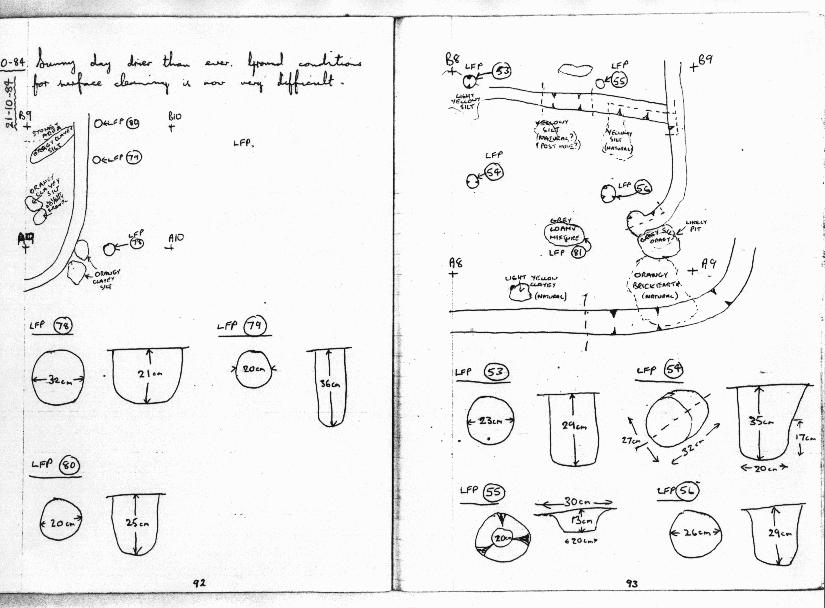 0-84. Sunny day drier than ever. Ground conditions
for surface cleaning is now very difficult.
21-10-84
B9
B10
LFP 80
STONEY AREA
ORANGY CLAYEY SILT
LFP 79
LFP.
ORANGY
CLAYEY
SILT
A10
LFP 78
ORANGY
CLAYEY
SILT
LFP 78
32cm
21cm
LFP 79
20cm
36cm
LFP 80
20cm
25cm
92
B8
LFP
53
LFP
55
B9
LIGHT
YELLOWY
SILT
YELLOWY
SILT
(NATURAL?)
(POST HOLE?)
YELLOWY
SILT
(NATURAL)
LFP
54
LFP 56
GREY
LOAMY
MIXTURE
LFP 81
LIKELY
PIT
A8
A9
LIGHT YELLOW
CLAYEY
(NATURAL)
ORANGY
BRICKEARTH
(NATURAL)
LFP 53
23cm
29cm
LFP 54
27cm
32cm
35cm
17cm
20cm
LFP 55
20cm
30cm
13cm
20cm
LFP 56
26cm
29cm
93